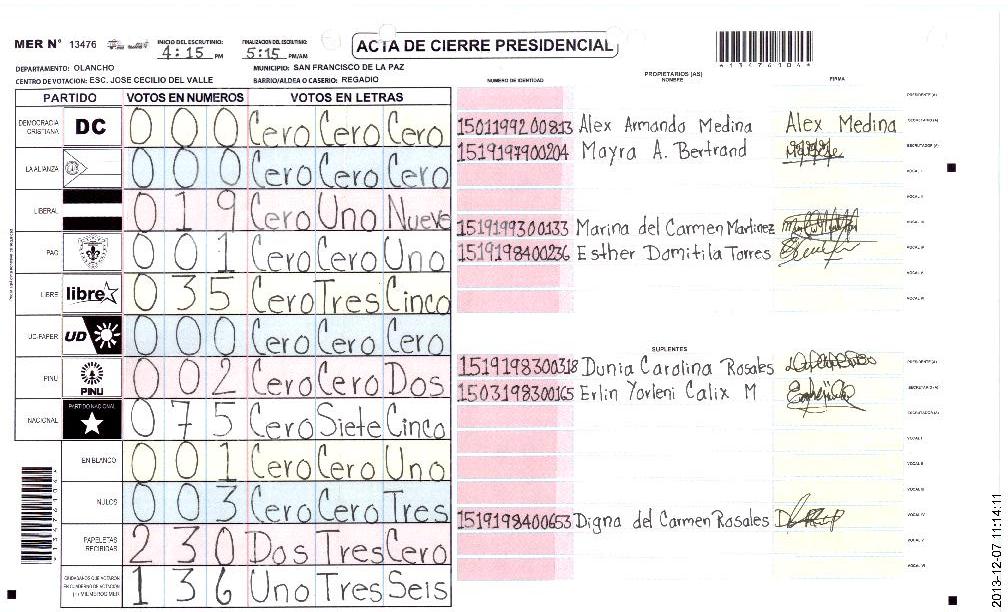 MER N° 13476
INICIO DEL ESCRUTINIO: 4:15 PM
FINALIZACION DEL ESCRUTINIO: 5:15 PM/AM
ACTA DE CIERRE PRESIDENCIAL
DEPARTAMENTO: OLANCHO
MUNICIPIO: SAN FRANCISCO DE LA PAZ
CENTRO DE VOTACION: ESC. JOSE CECILIO DEL VALLE
BARRIO/ALDEA O CASERIO: REGADIO
PARTIDO VOTOS EN NUMEROS VOTOS EN LETRAS
DEMOCRACIA CRISTIANA DC 0 0 0 Cero Cero Cero
LA ALIANZA 0 0 0 Cero Cero Cero
LIBERAL 0 1 9 Cero Uno Nueve
PAC 0 0 1 Cero Cero Uno
LIBRE libre 0 3 5 Cero Tres Cinco
UD-FAPER UD 0 0 0 Cero Cero Cero
PINU PINU 0 0 2 Cero Cero Dos
NACIONAL PARTIDO NACIONAL 0 7 5 Cero Siete Cinco
EN BLANCO 0 0 1 Cero Cero Uno
NULOS 0 0 3 Cero Cero Tres
PAPELETAS RECIBIDAS 2 3 0 Dos Tres Cero
CIUDADANOS QUE VOTARON EN CUADERNO DE VOTACION (+) MIEMBROS MER 1 3 6 Uno Tres Seis
NUMERO DE IDENTIDAD
PROPIETARIOS (AS)
NOMBRE
FIRMA
PRESIDENTE (A)
1501199200813 Alex Armando Medina Alex Medina SECRETARIO (A)
1519197900204 Mayra A. Bertrand ESCRUTADOR (A)
VOCAL I
VOCAL II
1519199300133 Marina del Carmen Martinez VOCAL III
1519198400236 Esther Domitila Torres VOCAL IV
VOCAL V
VOCAL VI
SUPLENTES
1519198300318 Dunia Carolina Rosales PRESIDENTE (A)
1503198300165 Erlin Yorleni Calix M SECRETARIO (A)
ESCRUTADOR (A)
VOCAL I
VOCAL II
VOCAL III
1519198400653 Digna del Carmen Rosales VOCAL IV
VOCAL V
VOCAL VI
2013-12-07 11:14:11